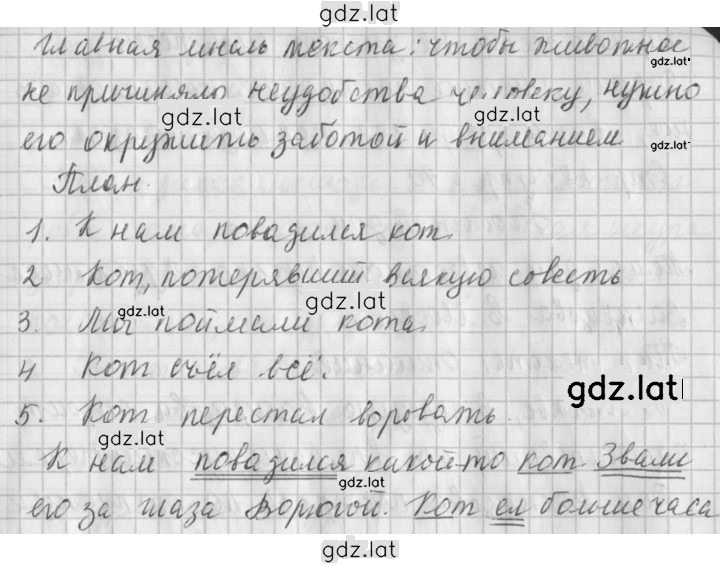 gdz.lat
Главная мысль текста: чтобы животное
gdz.lat
не причиняло неудобства человеку, нужно
gdz.lat
его окружить заботой и вниманием
gdz.lat
План.
1. К нам повадился кот.
2 Кот, потерявший всякую совесть
gdz.lat
gdz.lat
3. Мы поймали кота.
4 Кот съел всё.
gdz.lat
5. Кот перестал воровать.
gdz.lat
К нам повадился какой-то кот Звали
gdz.lat
его за глаза Ворюгой. Кот ел больше часа
gdz.lat